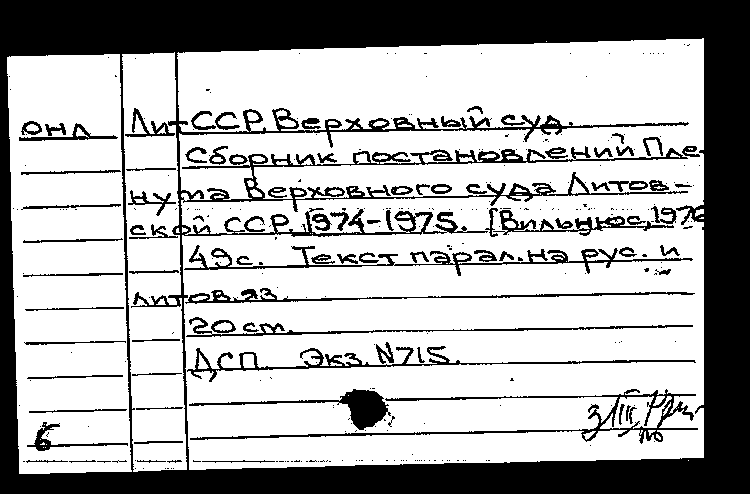 ОНЛ ЛитССР. Верховный суд.
Сборник постановлений Пле-
нума Верховного суда Литов-
ской ССР. 1974-1975. [Вильнюс, 1976
49с. Текст парал. на рус. и
литов. яз.
20 cm.
ДСП Экз. N715.
6